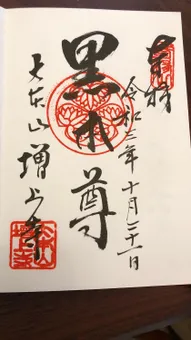 奉拝
令和二年十月二十一日
黒本尊
大本山増上寺